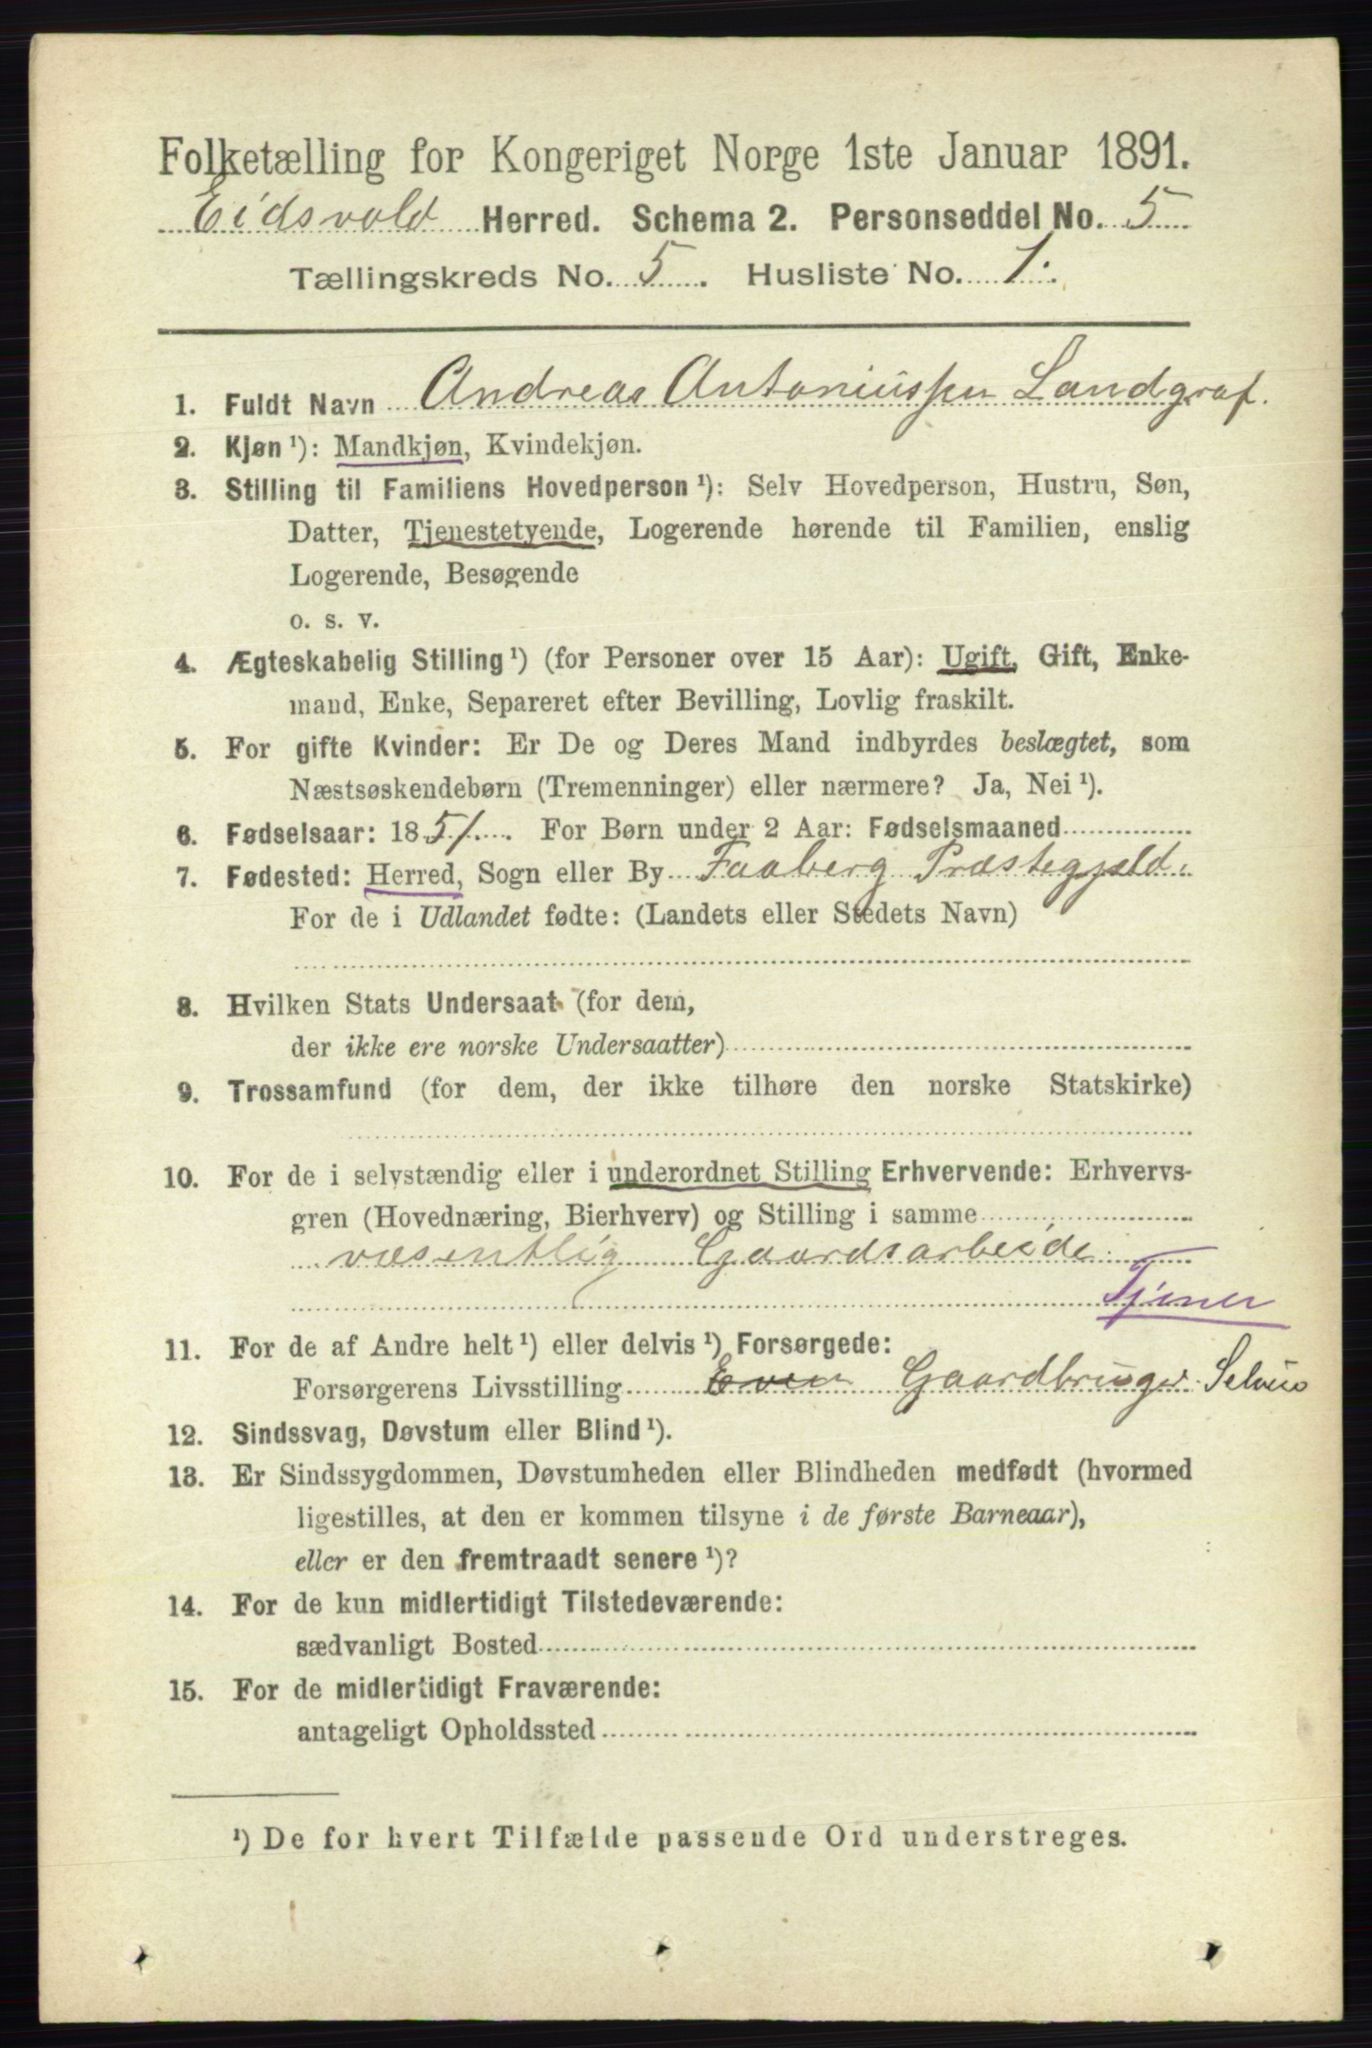 Folketælling for Kongeriget Norge 1ste Januar 1891.
Eidsvold Herred. Schema 2. Personseddel No. 5
Tællingskreds No. 5. Husliste No. 1.
1. Fuldt Navn Andreas Antoniussen Landgraf.
2. Kjøn ¹): Mandkjøn, Kvindekjøn.
3. Stilling til Familiens Hovedperson ¹): Selv Hovedperson, Hustru, Søn,
Datter, Tjenestetyende, Logerende hørende til Familien, enslig
Logerende, Besøgende
o. s. v.
4. Ægteskabelig Stilling ¹) (for Personer over 15 Aar): Ugift, Gift, Enke-
mand, Enke, Separeret efter Bevilling, Lovlig fraskilt.
5. For gifte Kvinder: Er De og Deres Mand indbyrdes beslægtet, som
Næstsøskendebørn (Tremenninger) eller nærmere? Ja, Nei ¹).
6. Fødselsaar: 1851. For Børn under 2 Aar: Fødselsmaaned
7. Fødested: Herred, Sogn eller By Faaberg Præstegjæld.
For de i Udlandet fødte: (Landets eller Stedets Navn)
8. Hvilken Stats Undersaat (for dem,
der ikke ere norske Undersaatter)
9. Trossamfund (for dem, der ikke tilhøre den norske Statskirke)
10. For de i selvstændig eller i underordnet Stilling Erhvervende: Erhvervs-
gren (Hovednæring, Bierhverv) og Stilling i samme
væsentlig Gaardsarbeide.
Tjener
11. For de af Andre helt ¹) eller delvis ¹) Forsørgede:
Forsørgerens Livsstilling Even Gaardbruger
12. Sindssvag, Døvstum eller Blind ¹).
13. Er Sindssygdommen, Døvstumheden eller Blindheden medfødt (hvormed
ligestilles, at den er kommen tilsyne i de første Barneaar),
eller er den fremtraadt senere ¹)?
14. For de kun midlertidigt Tilstedeværende:
sædvanligt Bosted
15. For de midlertidigt Fraværende:
antageligt Opholdssted
¹) De for hvert Tilfælde passende Ord understreges.